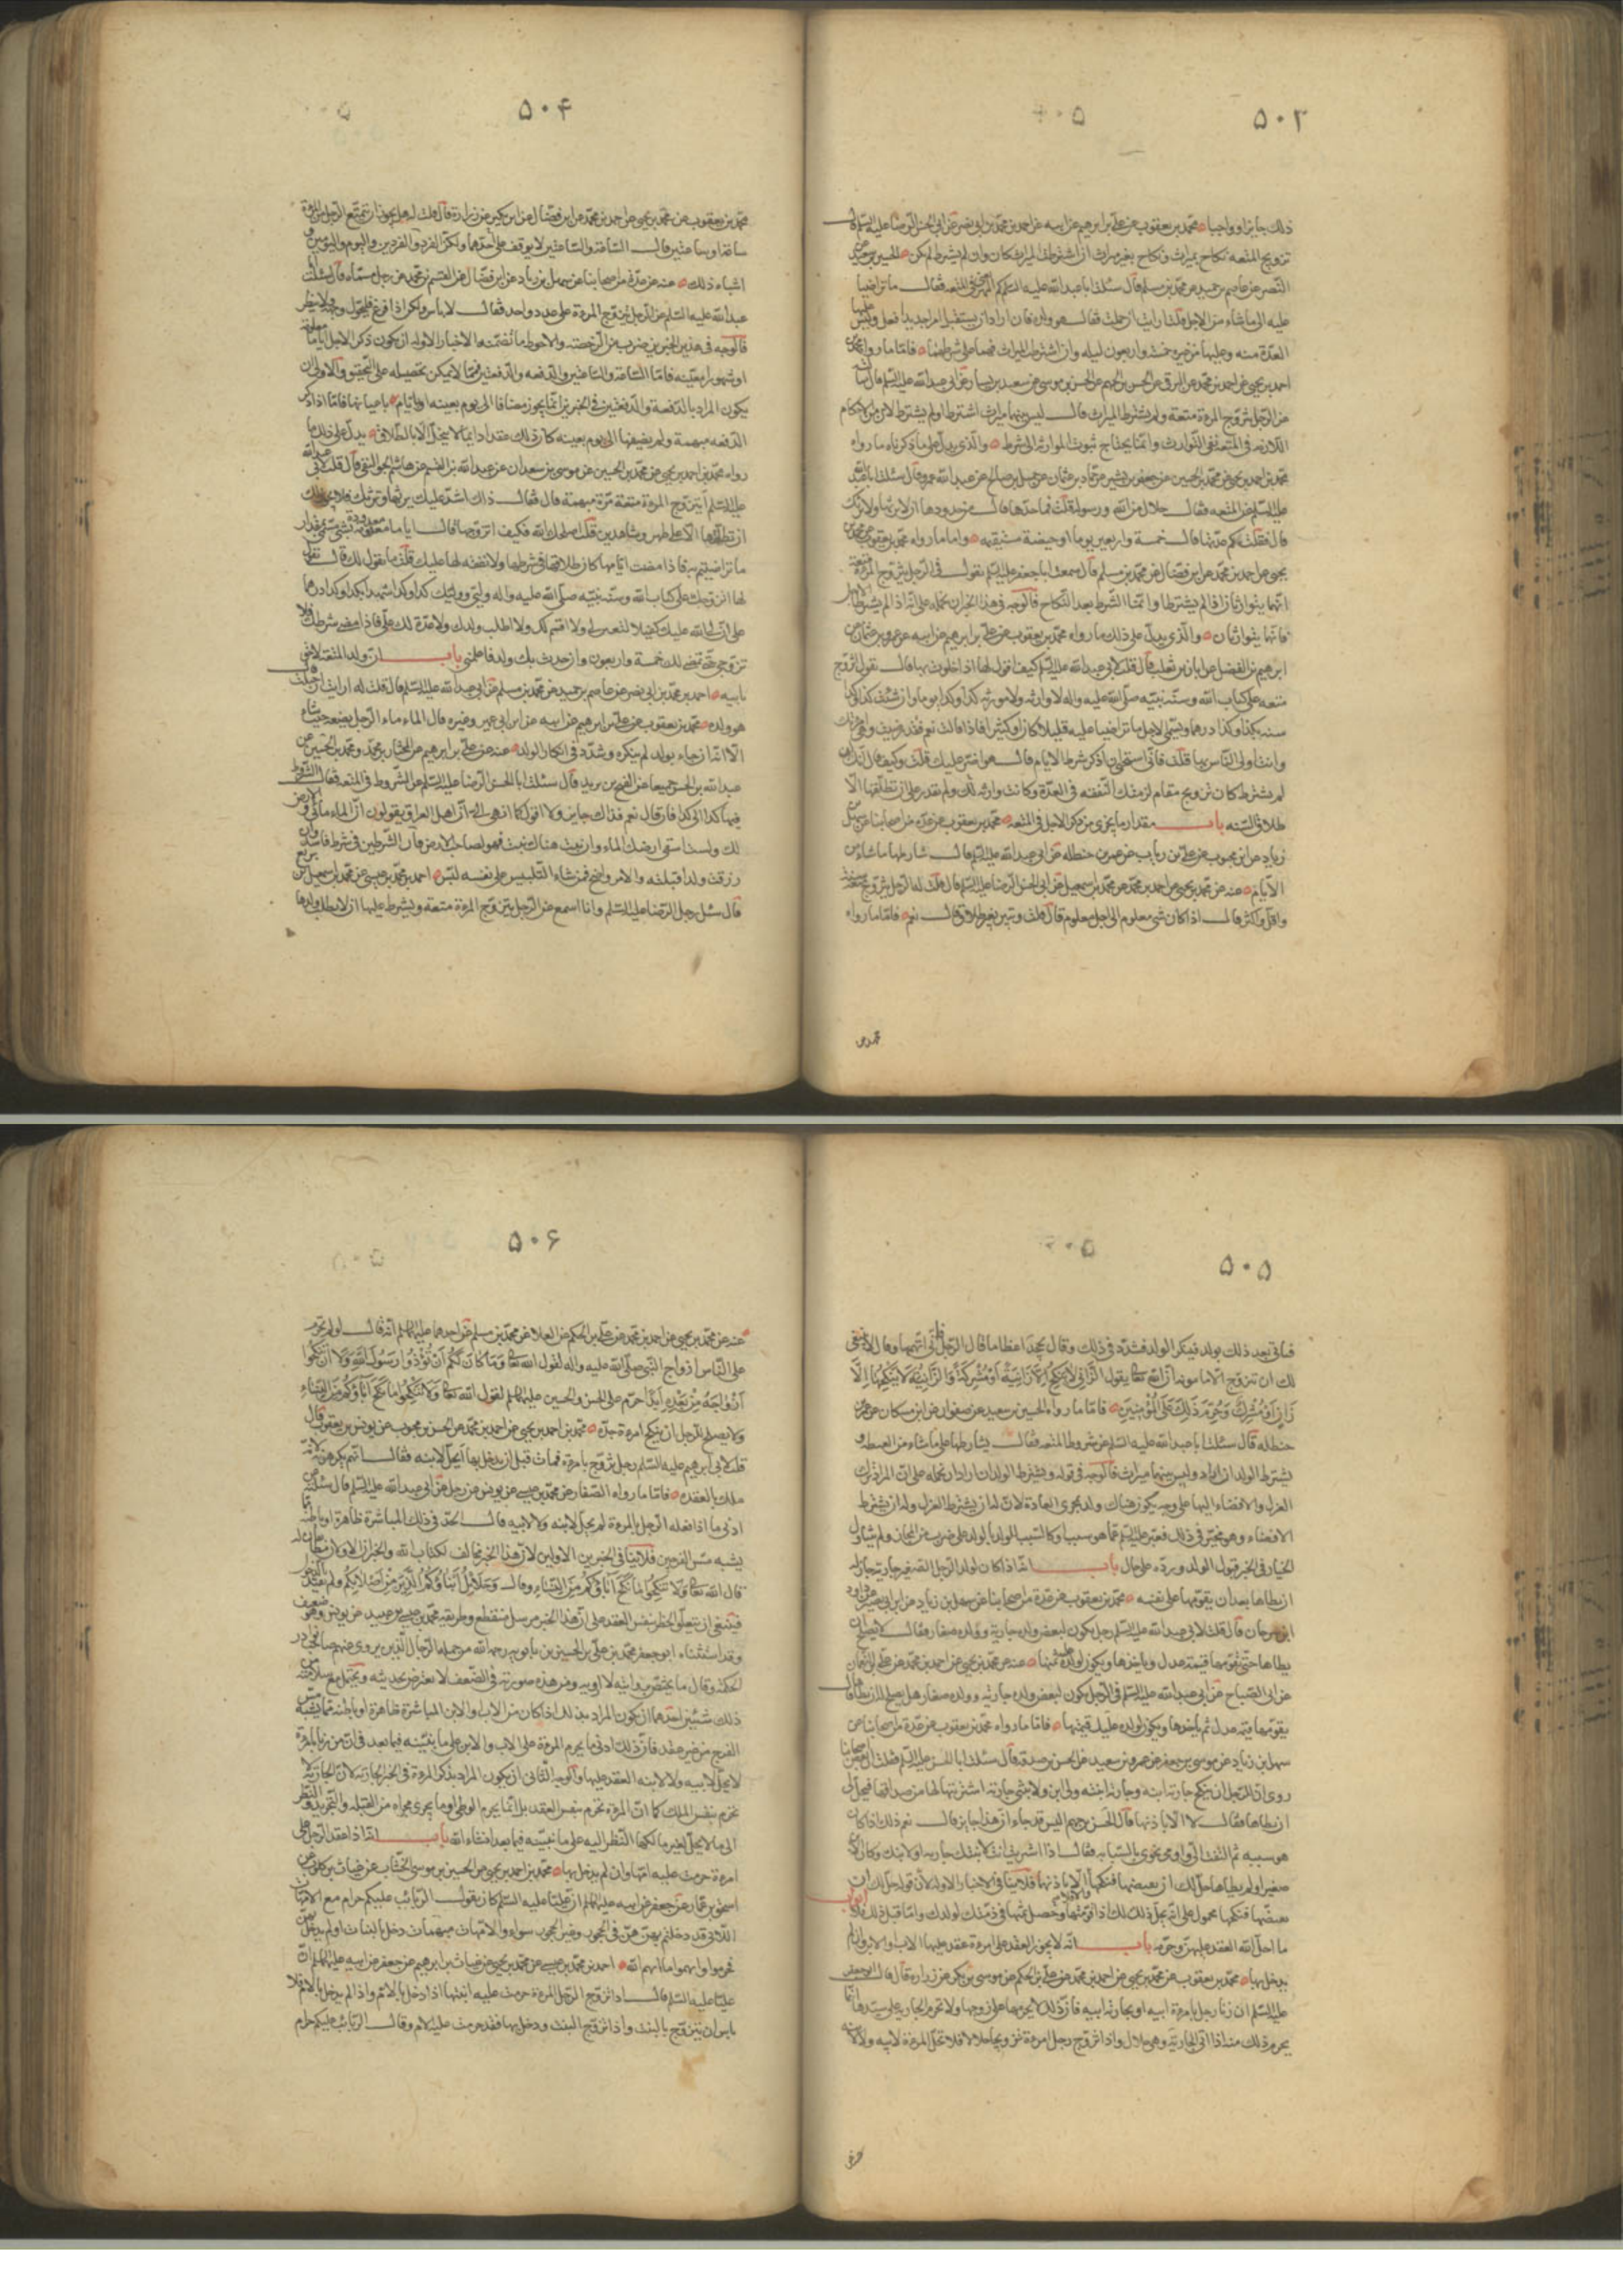 ۵۰۳
ذلك جايزا و واجبا محمد بن يعقوب عن علي بن ابرهيم عن ابيه عن احمد بن محمد بن ابي نصر عن ابي الحسن الرضا عليه السلم قال
تزويج المتعه نكاح بميراث و نكاح بغير ميراث ان اشترطت الميراث كان وان لم يشترط لم يكن الحسين بن سعيد عن
النضر عن عاصم بن حميد عن محمد بن مسلم قال سئلت ابا عبد الله عليه السلم كم المهر يعني في المتعه فقال ما تراضيا
عليه الى ما شاء من الاجل قلت ارايت ان حملت فقال هو ولده فان اراد ان يستقبل امرا جديدا فعل وليس عليها
العدة منه وعليها من غيره خمسة واربعون ليله وان اشترطت الميراث فهما على شرطهما فاما ما رواه محمد بن
احمد بن يحيى عن احمد بن محمد عن البرقي عن الحسن بن الجهم عن الحسن بن موسى عن سعيد بن يسار عن ابي عبد الله عليه السلم قال سالته
عن الرجل يتزوج المرءة متعة ولم يشترط الميراث قال ليس بينهما ميراث اشترط او لم يشترط لان من الاحكام
اللازمه في المتعه نفي التوارث وانما يحتاج ثبوت الموارثه الى شرط والذي يدل على ما ذكرناه ما رواه
محمد بن احمد بن يحيى عن محمد بن الحسين عن جعفر بن بشير عن حماد بن عثمان عن جميل بن صالح عن عبد الله بن عمرو قال سئلت ابا عبد الله
عليه السلم عن المتعه فقال حلال من الله ورسوله قلت فما حدها قال من حدودها ان لا ترثها ولا ترثك
قال فقلت كم عدتها قال خمسة واربعين يوما او حيضة مستقيمه واما ما رواه محمد بن يعقوب عن محمد بن
يحيى عن احمد بن محمد عن ابن فضال عن محمد بن مسلم قال سمعت ابا جعفر عليه السلم يقول في الرجل يتزوج المرءة متعة
انهما يتوارثان اذا لم يشترطا وانما الشرط بعد النكاح فالوجه في هذا الخبر ان نحمله على انه اذا لم يشترطا الاجل
فانهما يتوارثان والذي يدل على ذلك ما رواه محمد بن يعقوب عن علي بن ابرهيم عن ابيه عن عمرو بن عثمان عن
ابرهيم بن الفضل عن ابان بن تغلب قال قلت لابي عبد الله عليه السلم كيف اقول لها اذا خلوت بها قال تقول اتزوجك
متعه على كتاب الله وسنه نبيه صلى الله عليه واله لا وارثه ولا موروثه كذا وكذا يوما وان شئت كذا وكذا
سنه بكذا وكذا درهما وتسمى الاجل ما تراضيتما عليه قليلا كان او كثيرا فاذا قالت نعم فقد رضيت وهي امرءتك
وانت اولى الناس بها قلت فاني استحيي ان اذكر شرط الايام قال هو اضر عليك قلت وكيف قال انك ان
لم تشترط كان تزويج مقام لزمتك النفقه في العدة وكانت وارثه لك ولم تقدر على ان تطلقها الا
طلاق السنه باب مقدار ما يجزي من ذكر الاجل في المتعه محمد بن يعقوب عن عده من اصحابنا عن سهل بن
زياد عن ابن محبوب عن علي بن رياب عن عمر بن حنظله عن ابي عبد الله عليه السلم قال شارطها ما شاء من
الايام عنه عن محمد بن يحيى عن احمد بن محمد عن محمد بن اسمعيل عن ابي الحسن الرضا عليه السلم قال قلت له الرجل يتزوج متعه سنة
واقل واكثر قال اذا كان شئ معلوم الى اجل معلوم قال قلت وتبين بغير طلاق قال نعم فاما ما رواه
محمد بن
۵۰۴
محمد بن يعقوب عن محمد بن يحيى عن احمد بن محمد عن ابن فضال عن ابن بكير عن زرارة قال قلت له هل يجوز ان يتمتع الرجل من المرءة
ساعة او ساعتين قال الساعة والساعتين لا يوقف على حدهما ولكن الفرد والفردين واليوم واليومين و
اشباه ذلك عنه عن عدة من اصحابنا عن سهل بن زياد عن ابن فضال عن القسم بن محمد عن رجل سماه قال سئلت ابا
عبد الله عليه السلم عن الرجل يتزوج المرءة على عدد واحد فقال لا باس ولكن اذا فرغ فليحول وجهه ولا ينظر
فالوجه في هذين الخبرين ضرب من الرخصه والاحوط ما تضمنه الاخبار الاوله ان يكون ذكر الاجل اياما معلومة
او شهورا معينه فاما الساعة والساعتين والدفعه والدفعتين فمما لا يمكن تحصيله على التحقيق والاولى ان
يكون المراد بالدفعة والدفعتين في الخبرين انما يجوز مضافا الى يوم بعينه او ايام باعيانها فاما اذا ذكر
الدفعه مبهمة ولم يضفها الى يوم بعينه كان ذلك عقدا دايما لا ينحل الا بالطلاق يدل على ذلك ما
رواه محمد بن احمد بن يحيى عن محمد بن الحسين عن موسى بن سعدان عن عبد الله بن القسم عن هشام بن سالم الجواليقي قال قلت لابي عبد الله
عليه السلم اتزوج المرءة متعة مرة مبهمة قال فقال ذلك اشد عليك ترثها وترثك فلا يجوز لك
ان تطلقها الا على طهر وشاهدين قلت اصلحك الله فكيف اتزوجها قال اياما معدودة بشئ مسمى مقدار
ما تراضيتم به فاذا مضت ايامها كان طلاقها في شرطها ولا نفقه لها عليك قلت ما نقول لك قال تقول
لها اتزوجك على كتاب الله وسنه نبيه صلى الله عليه واله
على ان لي الله عليك كفيلا لتفين لي ولا اقسم لك ولا اطلب ولدك ولا عدة لك علي فاذا مضى شرطك فلا
تزوجي حتى تمضي لك خمسة واربعون وان حدث بك ولد فاعلمني باب ان ولد المتعه لاحق
بابيه احمد بن محمد بن ابي نصر عن عاصم بن حميد عن محمد بن مسلم عن ابي عبد الله عليه السلم قال قلت له ارايت ان حملت قال
هو ولده محمد بن يعقوب عن علي بن ابرهيم عن ابيه عن ابن ابي عمير وغيره قال الماء ماء الرجل يضعه حيث شاء
الا انه اذا جاء بولد لم ينكره وشدد في انكار الولد عنه عن علي بن ابرهيم عن المختار بن محمد ومحمد بن الحسن عن
عبد الله بن الحسن جميعا عن الفتح بن يزيد قال سئلت ابا الحسن الرضا عليه السلم عن الشروط في المتعه فقال الشرط
فيها كذا الى كذا فان قال نعم فذاك جايز ولا تقول كما انهي الي ان اهل العراق يقولون ان الماء مائي والارض
لك ولست اسقي ارضك الماء وان نبت هناك نبت فهو لصاحب الارض فان الشرطين في شرط فاسد وان
رزقت ولدا قبلته والامر واضح فمن شاء التلبيس على نفسه لبس احمد بن محمد بن عيسى عن محمد بن اسمعيل بن بزيع
قال سئل رجل الرضا عليه السلم وانا اسمع عن الرجل يتزوج المرءة متعة ويشرط عليها ان لا يطلب ولدها
۵۰۵
فتاتي بعد ذلك بولد فينكر الولد فشدد في ذلك وقال يجحد اعظاما قال الرجل فان اتهمها قال لا ينبغي
لك ان تتزوج الا مامونه ان الله تعالى يقول الزاني لا ينكح الا زانية او مشركة والزانية لا ينكحها الا
زان او مشرك وحرم ذلك على المؤمنين فاما ما رواه الحسين بن سعيد عن صفوان عن ابن مسكان عن عمر بن
حنطله قال سئلت ابا عبد الله عليه السلم عن شروط المتعه فقال يشارطها على ما شاء من العطيه و
يشترط الولد ان اراد وليس بينهما ميراث فالوجه في قوله ويشترط الولد ان اراد ان نحمله على ان المراد ترك
العزل والافضاء اليها على وجه يكون هناك ولد بمجرى العادة لان له ان يشترط العزل وله ان يشترط
الافضاء وهو مخير في ذلك فعبر عليه السلم عما هو سبب او كالسبب للولد بالولد على ضرب من المجاز ولم يتناول
الخيار في الخبر قبول الولد ورده على حال باب انه اذا كان لولد الرجل الصغير جارية جاز له
ان يطاها بعد ان يقومها على نفسه محمد بن يعقوب عن عدة من اصحابنا عن سهل بن زياد عن ابن ابي نصر عن داود
ابن سرحان قال قلت لابي عبد الله عليه السلم رجل يكون لبعض ولده جارية وولده صغار فقال لا يصلح ان
يطاها حتى يقومها قيمة عدل وياخذها ويكون لولده عليه ثمنها عنه عن محمد بن يحيى عن احمد بن محمد عن علي بن النعمان
عن ابي الصباح عن ابي عبد الله عليه السلم في الرجل يكون لبعض ولده جاريه وولده صغار هل يصلح له ان يطاها قال
يقومها قيمه عدل ثم ياخذها ويكون لولده عليه قيمتها فاما ما رواه محمد بن يعقوب عن عدة من اصحابنا عن
سهل بن زياد عن موسى بن جعفر عن عمرو بن سعيد عن الحسن بن صدقه قال سئلت ابا الحسن عليه السلم فقلت ان بعض اصحابنا
روى ان للرجل ان ينكح جارية ابنه وجارية ابنته ولي ابن ولابنتي جارية اشتريتها لها من صداقها فيحل لي
ان اطاها فقال لا الا باذنها قال الحسن بن جهم اليس قد جاء ان هذا جايز قال نعم ذلك اذا كان
هو سببه ثم التفت الي واومى نحوي بالسبابه فقال اذا اشتريت انت لابنتك جارية او لابنك وكان الابن
صغيرا ولم يطاها حل لك ان تفتضها فتنكحها والا فلا الا باذنهما فلا ينافي الاخبار الاوله لان قوله حل لك ان
تفتضها فتنكحها محمول على انه يحل ذلك لك اذا قومتها وحصل ثمنها في ذمتك لولدك واما قبل ذلك فلا ابواب
ما احل الله العقد عليهن وحرمه باب انه لا يجوز العقد على امرءة عقد عليها الاب والابن وان لم
يدخل بها محمد بن يعقوب عن محمد بن يحيى عن احمد بن محمد عن علي بن الحكم عن موسى بن بكر عن زراره قال قال ابو جعفر
عليه السلم ان زنا رجل بامرءة ابيه او بجارية ابيه فان ذلك لا يحرمها على زوجها ولا تحرم الجاريه على سيدها انما
يحرم ذلك منه اذا اتى الجارية وهي حلال واذا تزوج رجل امرءة تزويجا حلالا فلا تحل المرءة لابيه ولا لابنه
۵۰۶
عنه عن محمد بن يحيى عن احمد بن محمد عن علي بن الحكم عن العلا عن محمد بن مسلم عن احدهما عليهما السلم انه قال لو لم تحرم
على الناس ازواج النبي صلى الله عليه واله لقول الله تعالى وما كان لكم ان تؤذوا رسول الله ولا ان تنكحوا
ازواجه من بعده ابدا حرم على الحسن والحسين عليهما السلم لقول الله تعالى ولا تنكحوا ما نكح آباؤكم من النساء
ولا يصلح للرجل ان ينكح امرءة جده محمد بن احمد بن يحيى عن احمد بن محمد عن الحسن بن محبوب عن يونس بن يعقوب قال
قلت لابي ابرهيم عليه السلم رجل تزوج بامرءة فمات قبل ان يدخل بها اتحل لابنه فقال انهم يكرهونه لانه
ملك بالعقده فاما ما رواه الصفار عن محمد بن عيسى عن يونس عن رجل عن ابي عبد الله عليه السلم قال سئلته عن
ادنى ما اذا فعله الرجل بالمرءة لم يحل لابنه ولا لابيه قال الحد في ذلك المباشرة ظاهرة او باطنه مما
يشبه مس الفرجين فلا ينافي الخبرين الاولين لان هذا الخبر مخالف لكتاب الله والخبران الاولان مطابقان له
قال الله تعالى ولا تنكحوا ما نكح آباؤكم من النساء وقال وحلائل ابنائكم الذين من اصلابكم ولم يقيد بالدخول
فينبغي ان يتعلق الحظر بنفس العقد على ان هذا الخبر مرسل منقطع وطريقه محمد بن عيسى بن عبيد عن يونس وهو ضعيف
وقد استثناه ابو جعفر محمد بن علي بن الحسين بن بابويه رحمه الله من جملة الرجال الذين يروي عنهم صاحب نوادر
الحكمة وقال ما يختص بروايته لا ارويه ومن هذه صورته في الضعف لا يعترض بحديثه ويحتمل مع سلامته من
ذلك شيئين احدهما ان يكون المراد بذلك اذا كان من الاب والابن المباشرة ظاهرة او باطنه مما يشبه مس
الفرج من غير عقد فان ذلك ادنى ما يحرم المرءة على الاب والابن على ما نبينه فيما بعد في ان من زنا بامرءة
لا يحل لابيه ولا لابنه العقد عليها والوجه الثاني ان يكون المراد بذكر المرءة في الخبر الجاريه لان الجارية لا
تحرم بنفس الملك كما ان المرءة تحرم بنفس العقد بل انما يحرم الوطي او ما يجري مجراه من القبله والتجريد والنظر
الى ما لا يحل لغير مالكها النظر اليه على ما نبينه فيما بعد انشاء الله باب انه اذا عقد الرجل على
امرءة حرمت عليه امها وان لم يدخل بها محمد بن احمد بن يحيى عن الحسين بن موسى الخشاب عن غياث بن كلوب عن
اسحق بن عمار عن جعفر عن ابيه عليهما السلم ان عليا عليه السلم كان يقول الربائب عليكم حرام مع الامهات
اللاتي قد دخلتم بهن هن في الحجور وغير الحجور سواء والامهات مبهمات دخل بالبنات او لم يدخل بهن
فحرموا وابهموا ما ابهم الله احمد بن محمد بن عيسى عن محمد بن يحيى عن غياث بن ابرهيم عن جعفر عن ابيه عليهما السلم ان
عليا عليه السلم قال اذا تزوج الرجل المرءة حرمت عليه ابنتها اذا دخل بالام واذا لم يدخل بالام فلا
باس ان يتزوج بالبنت واذا تزوج البنت ودخل بها فقد حرمت عليه الام وقال الربائب عليكم حرام